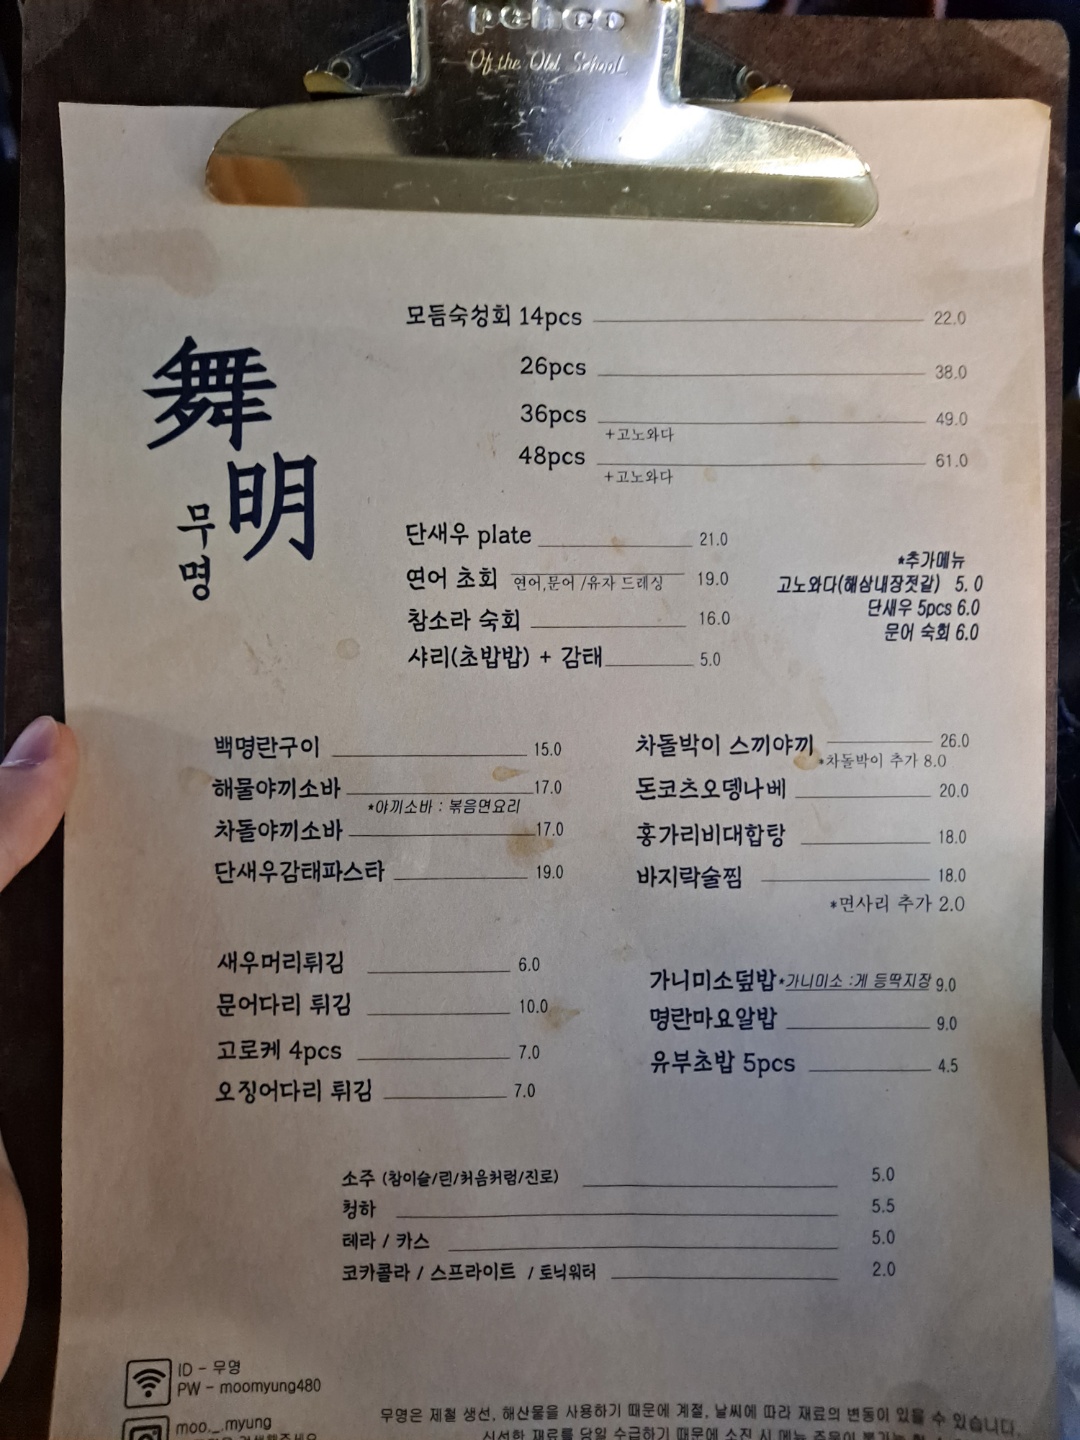 pehco
Of the Old School
舞明
무명
모듬숙성회 14pcs 22.0
26pcs 38.0
36pcs 49.0
+고노와다
48pcs 61.0
+고노와다
단새우 plate 21.0
연어 초회 연어,문어 /유자 드레싱 19.0
참소라 숙회 16.0
샤리(초밥밥) + 감태 5.0
*추가메뉴
고노와다(해삼내장젓갈) 5. 0
단새우 5pcs 6.0
문어 숙회 6.0
백명란구이 15.0
해물야끼소바 17.0
*야끼소바 : 볶음면요리
차돌야끼소바 17.0
단새우감태파스타 19.0
차돌박이 스끼야끼 26.0
*차돌박이 추가 8.0
돈코츠오뎅나베 20.0
홍가리비대합탕 18.0
바지락술찜 18.0
*면사리 추가 2.0
새우머리튀김 6.0
문어다리 튀김 10.0
고로케 4pcs 7.0
오징어다리 튀김 7.0
가니미소덮밥 *가니미소 :게 등딱지장 9.0
명란마요알밥 9.0
유부초밥 5pcs 4.5
소주 (참이슬/린/처음처럼/진로) 5.0
청하 5.5
테라 / 카스 5.0
코카콜라 / 스프라이트 / 토닉워터 2.0
ID - 무명
PW - moomyung480
moo._.myung
무명은 제철 생선, 해산물을 사용하기 때문에 계절, 날씨에 따라 재료의 변동이 있을 수 있습니다.
신선한 재료를 당일 수급하기 때문에 소진 시 메뉴 주문이